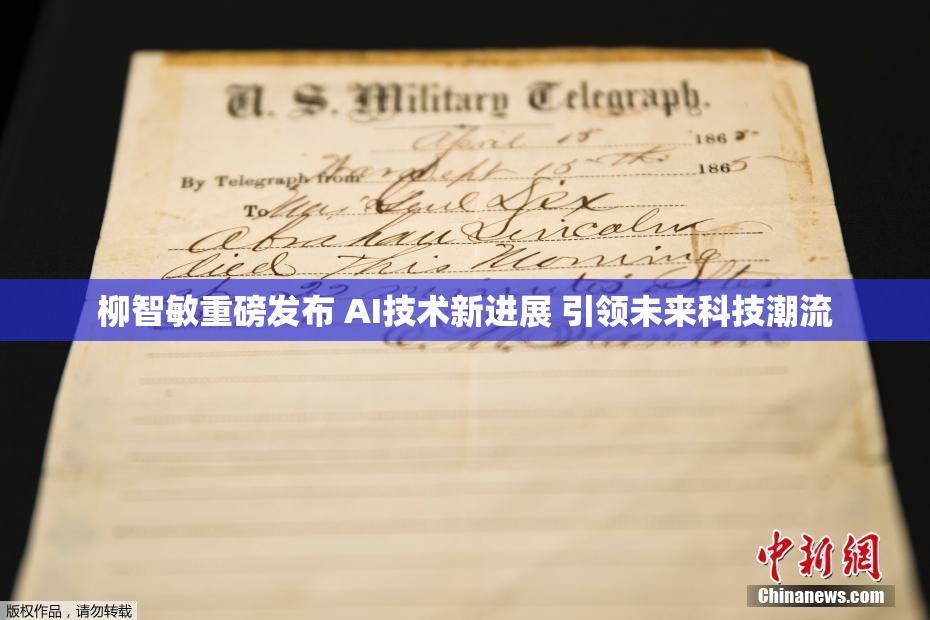 U. S. Military Telegraph.
April 15 1865
By Telegraph from War Dept 15th 1865
To Maj Genl Dix
Abraham Lincoln
died This Morning
柳智敏重磅发布 AI技术新进展 引领未来科技潮流
中新网
Chinanews.com
版权作品，请勿转载